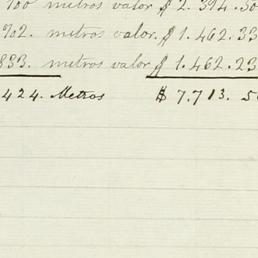 900 metros valor $ 2.394.30
902. metros valor. $ 1.462.33
833. metros valor $ 1.462.23
424. Metros $ 7.713. 5